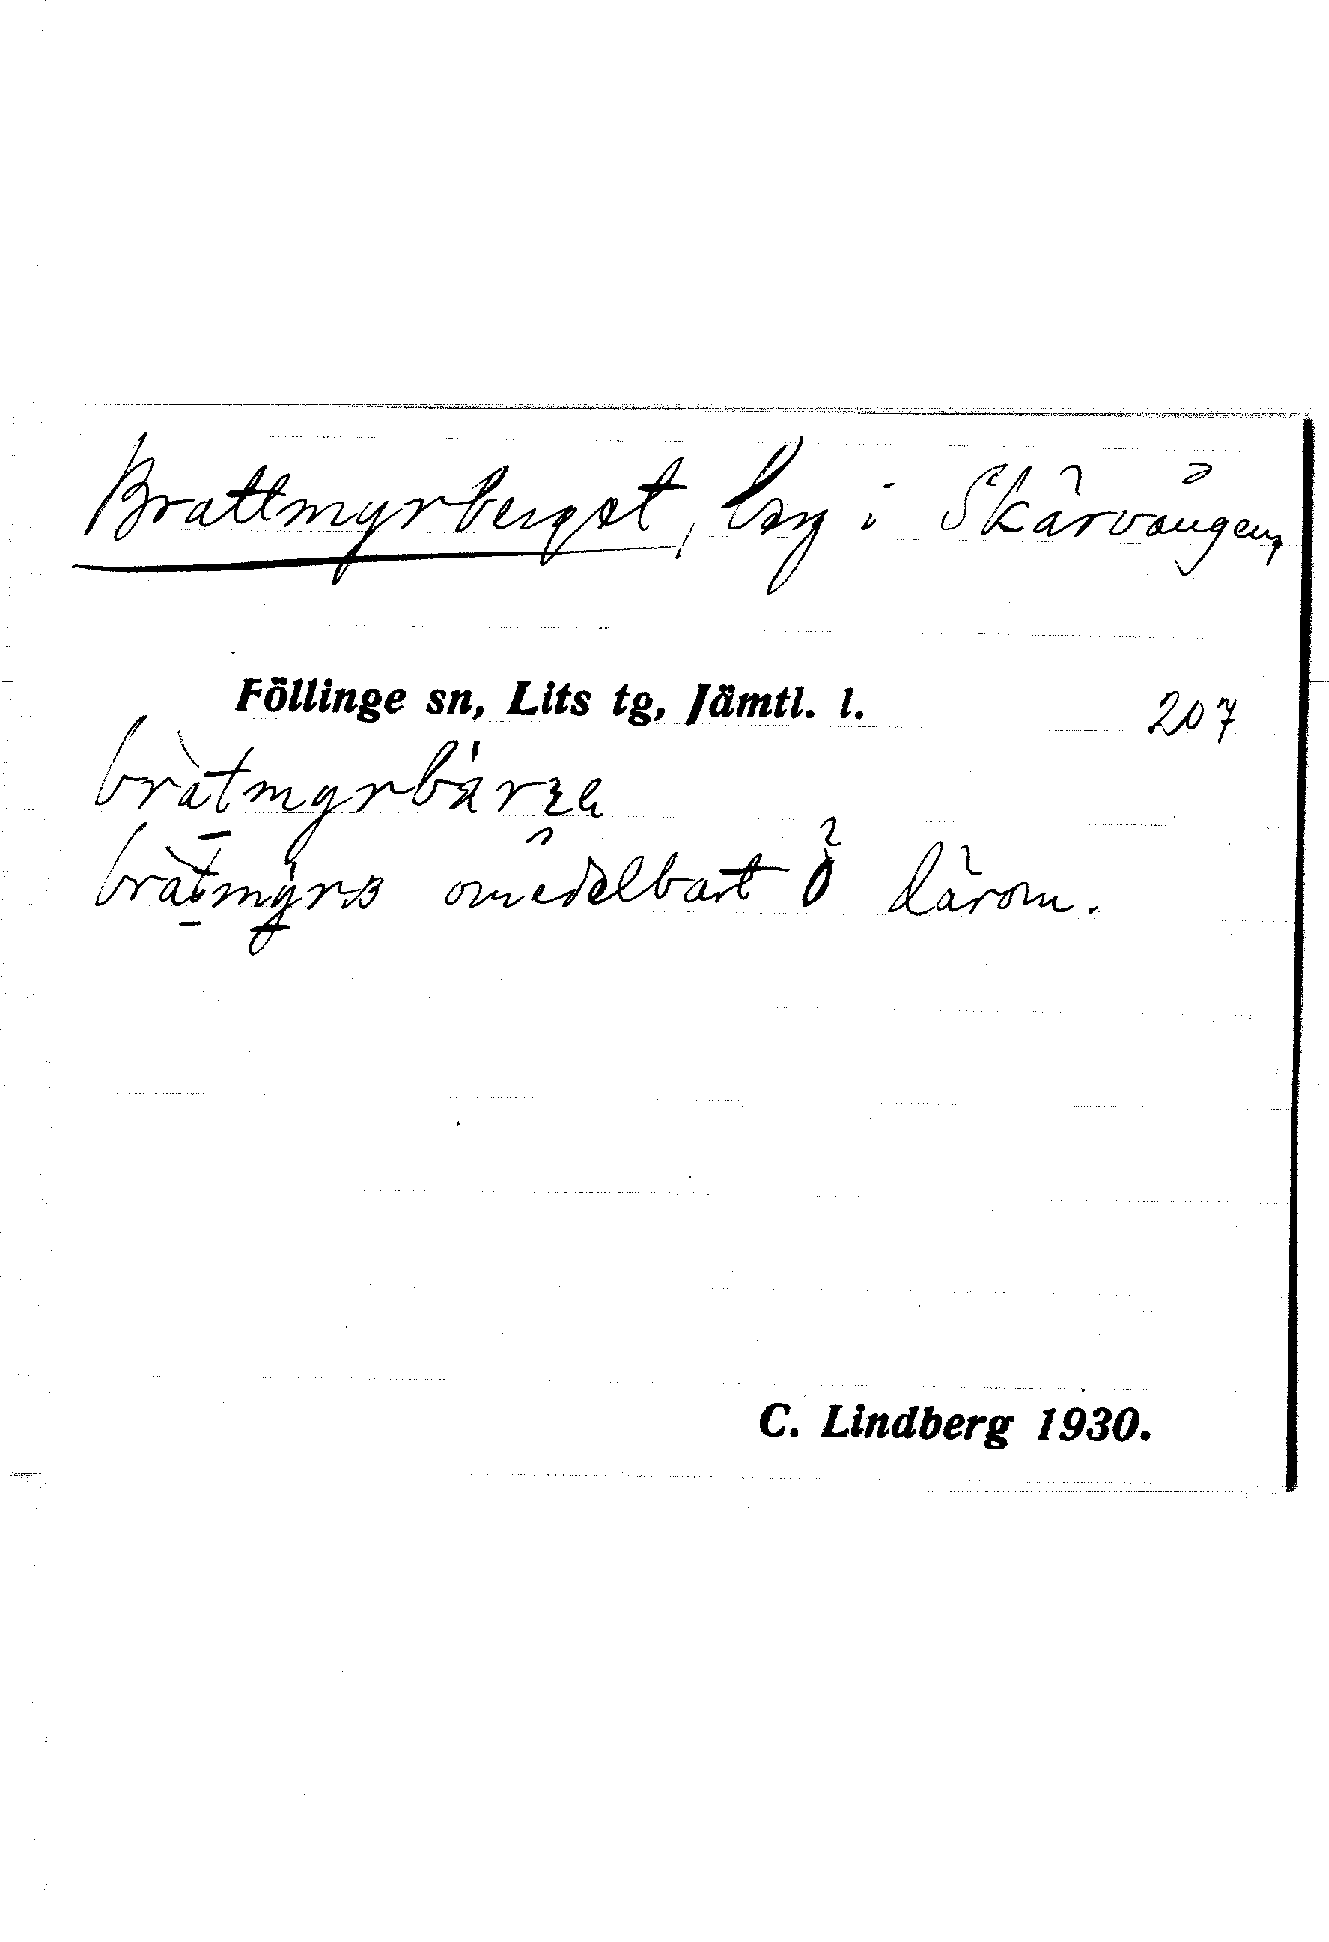 Brattmyrberget, by i Skärvången,
Föllinge sn, Lits tg, Jämtl. l. 207
omedelbart Ö därom.
C. Lindberg 1930.